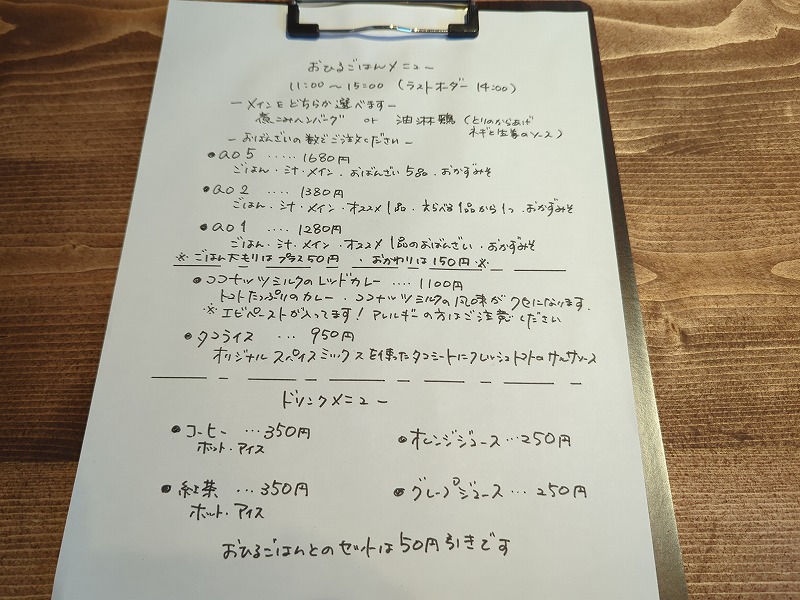 おひるごはんメニュー
11:00～15:00 (ラストオーダー 14:00)
ーメインをどちらか選べますー
煮こみハンバーグ or 油淋鶏 (とりのからあげ
ネギと生姜のソース)
ーおばんざいの数でご注文くださいー
●ao5 ‥‥‥ 1680円
ごはん・汁・メイン・おばんざい5品・おかずみそ
●ao2 ‥‥ 1380円
ごはん・汁・メイン・オススメ1品・えらべる1品から1つ・おかずみそ
●ao1 ‥‥ 1280円
ごはん・汁・メイン・オススメ1品のおばんざい・おかずみそ
※ごはん大もりはプラス50円 、おかわりは150円※
●ココナッツミルクのレッドカレー ‥‥ 1100円
トマトたっぷりのカレー・ココナッツミルクの風味がクセになります。
※エビペーストが入ってます!アレルギーの方はご注意ください
●タコライス … 950円
オリジナルスパイスミックスを使ったタコミートにフレッシュトマトのサルサソース
ドリンクメニュー
●コーヒー …350円
ホット・アイス
●オレンジジュース…250円
●紅茶 …350円
ホット・アイス
●グレープジュース…250円
おひるごはんとのセットは50円引きです